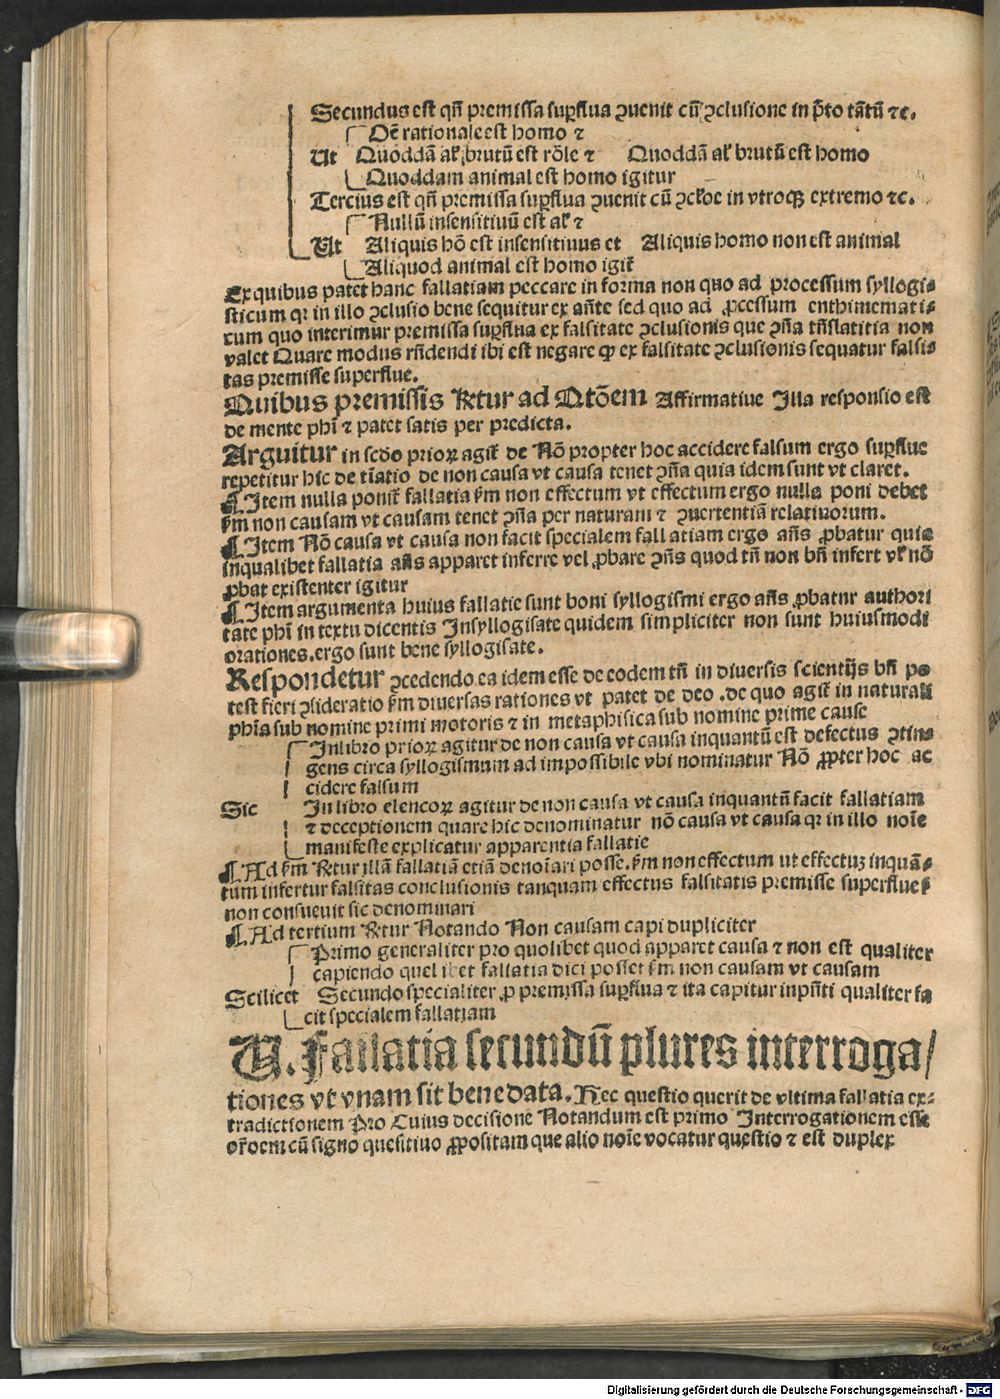 Secundus est qñ premissa suꝑflua ꝯuenit cũ ꝯclusione in p̃to tãtũ ⁊c.
Oẽ rationale est homo ⁊
Ut Quoddã aĺ brutũ est rõle ⁊ Quoddã aĺ brutũ est homo
Quoddam animal est homo igitur
Tercius est qñ premissa suꝑflua ꝯuenit cũ ꝯcĺoe in vtroqꝫ extremo ⁊c.
Nullũ insensitiuũ est aĺ ⁊
Ut Aliquis hõ est insensitiuus et Aliquis homo non est animal
Aliquod animal est homo igit᷑
Ex quibus patet hanc fallatiam peccare in forma non quo ad processum syllogi⸗
sticum qꝛ in illo ꝯclusio bene sequitur ex añte sed quo ad ꝓcessum enthimemati⸗
cum quo interimur premissa suꝑflua ex falsitate ꝯclusionis que ꝯña tñ flatitia non
valet Quare modus rñdendi ibi est negare ꝙ ex falsitate ꝯclusionis sequatur falsi⸗
tas premisse superflue.
Quibus premissis Rꝛtur ad Qtõem Affirmatiue Illa responsio est
de mente phĩ ⁊ patet satis per predicta.
Arguitur in scďo prioꝝ agit᷑ de Nõ propter hoc accidere falsum ergo suꝑflue
repetitur hic de tĩatio de non causa vt causa tenet ꝯña quia idem sunt vt claret.
¶ Item nulla ponit᷑ fallatia ẜm non effectum vt effectum ergo nulla poni debet
ẜm non causam vt causam tenet ꝯña per naturam ⁊ ꝯuertentiã relatiuorum.
¶ Item Nõ causa vt causa non facit specialem fallatiam ergo añs ꝓbatur quia
inqualibet fallatia añs apparet inferre vel ꝓbare ꝯñs quod tñ non bñ infert vĺ nõ
ꝓbat existenter igitur
¶ Item argumenta huius fallatie sunt boni syllogismi ergo añs ꝓbatur authori
tate phĩ in textu dicentis Insyllogisate quidem simpliciter non sunt huiusmodi
orationes.ergo sunt bene syllogisate.
Respondetur ꝯcedendo ea idem esse de eodem tñ in diuersis scientijs bñ po
test fieri ꝯsideratio ẜm diuersas rationes vt patet de deo .de quo agit᷑ in naturali
phĩa sub nomine primi motoris ⁊ in metaphisica sub nomine prime cause
In libro prioꝝ agitur de non causa vt causa inquantũ est defectus ꝯtin⸗
gens circa syllogismum ad impossibile vbi nominatur Nõ ꝓpter hoc ac
cidere falsum
Sic In libro elencoꝝ agitur de non causa vt causa inquantũ facit fallatiam
⁊ deceptionem quare hic denominatur nõ causa vt causa qꝛ in illo noĩe
manifeste explicatur apparentia fallatie
¶ Ad ẜm Rꝛtur illã fallatiã etiã denoĩari posse.ẜm non effectum ut effectuꝫ inquã⸗
tum infertur falsitas conclusionis tanquam effectus falsitatis premisse superflue ẜ
non consueuit sic denominari
¶ Ad tertium Rꝛtur Notando Non causam capi dupliciter
Primo generaliter pro quolibet quod apparet causa ⁊ non est qualiter
capiendo quelibet fallatia dici posset ẜm non causam vt causam
Scilicet Secundo specialiter ꝓ premissa suꝑflua ⁊ ita capitur inpñti qualiter fa
cit specialem fallatiam
U. Fallatia secundũ plures interroga/
tiones vt vnam sit bene data. Hec questio querit de vltima fallatia ex⸗
tradictionem Pro Cuius decisione Notandum est primo Interrogationem esse
oŕoem cũ signo quesitiuo ꝓpositam que alio noĩe vocatur questio ⁊ est duplex
Digitalisierung gefördert durch die Deutsche Forschungsgemeinschaft - DFG